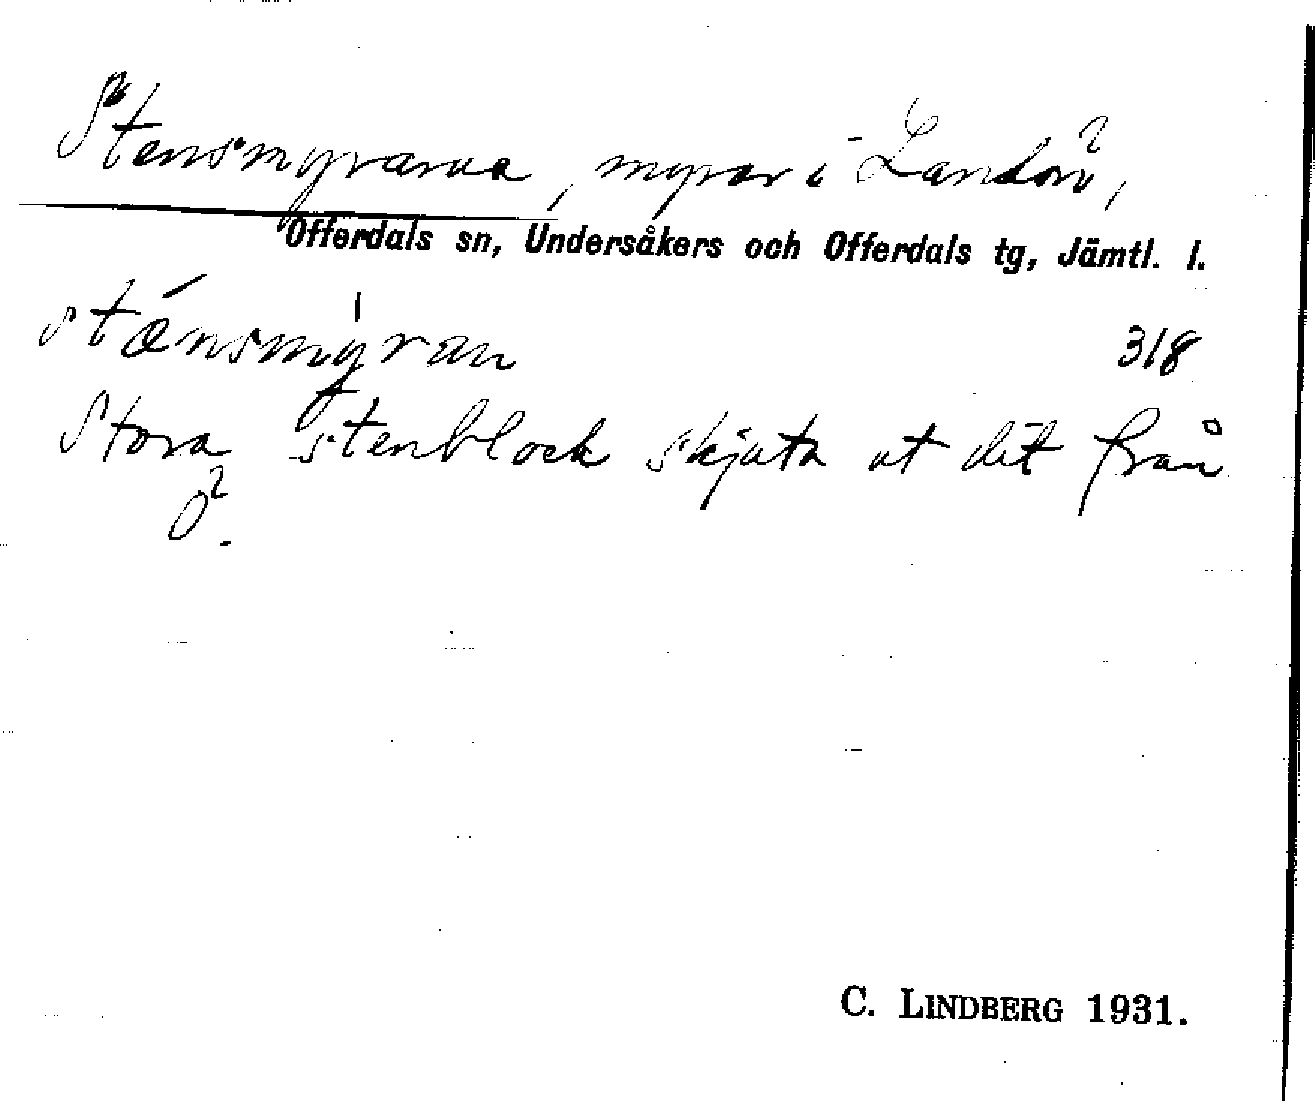 Stensmyrarna, myrar i Landön,
Offerdals sn, Undersåkers och Offerdals tg, Jämtl. l.
stǽnsmýran 318
Stora stenblock skjuta ut dit från
ö.
C. LINDBERG 1931.